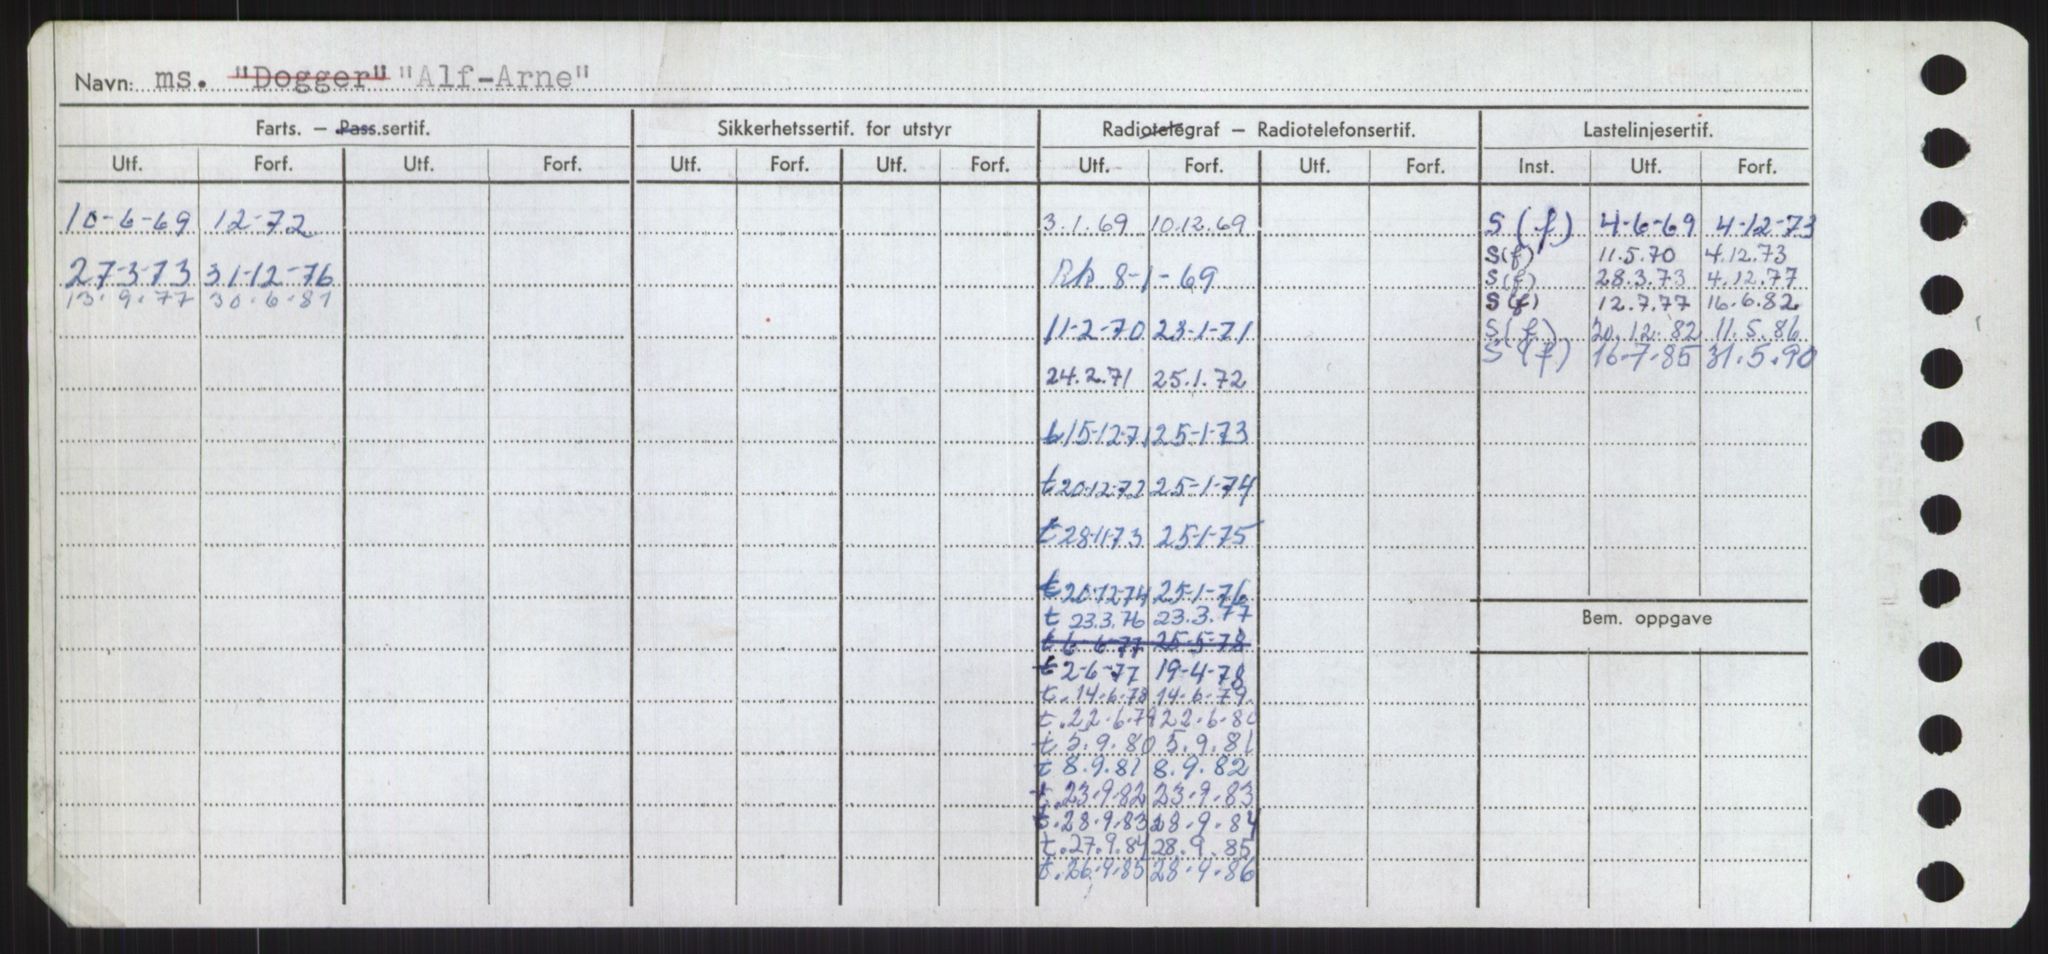 Navn: ms. "Dogger" "Alf-Arne"
Farts. – Pass.sertif. Sikkerhetssertif. for utstyr Radiotelegraf – Radiotelefonsertif. Lastelinjesertif.
Utf. Forf. Utf. Forf. Utf. Forf. Utf. Forf. Utf. Forf. Utf. Forf. Inst. Utf. Forf.
10-6-69 12-72 3.1.69 10.12.69 S (f) 4-6-69 4-12-73
S(f) 11.5.70 4.12.73
27-3-73 31-12-76 8-1-69 S(f) 28.3.73 4.12.77
13.9.77 30.6.81 S(f) 12.7.77 16.6.82
11-2-70 23-1-71 S(f) 20.12.82 11.5.86
S (f) 16-7-85 31.5.90
24.2.71 25.1.72
t 15-12-71 25-1-73
t 20-12-72 25-1-74
t 28-11-73 25-1-75
t 20-12-74 25-1-76
t 23.3.76 23.3.77
Bem. oppgave
t 6-6-77 25-5-78
t 2-6-77 19-4-78
t. 14.6.78 14.6.79.
t. 22.6.79 22.6.80
t 5.9.80 5.9.81
t 8.9.81 8.9.82
t. 23.9.82 23.9.83
t. 28.9.83 28.9.84
t. 27.9.84 28.9.85
t. 26.9.85 28.9.86